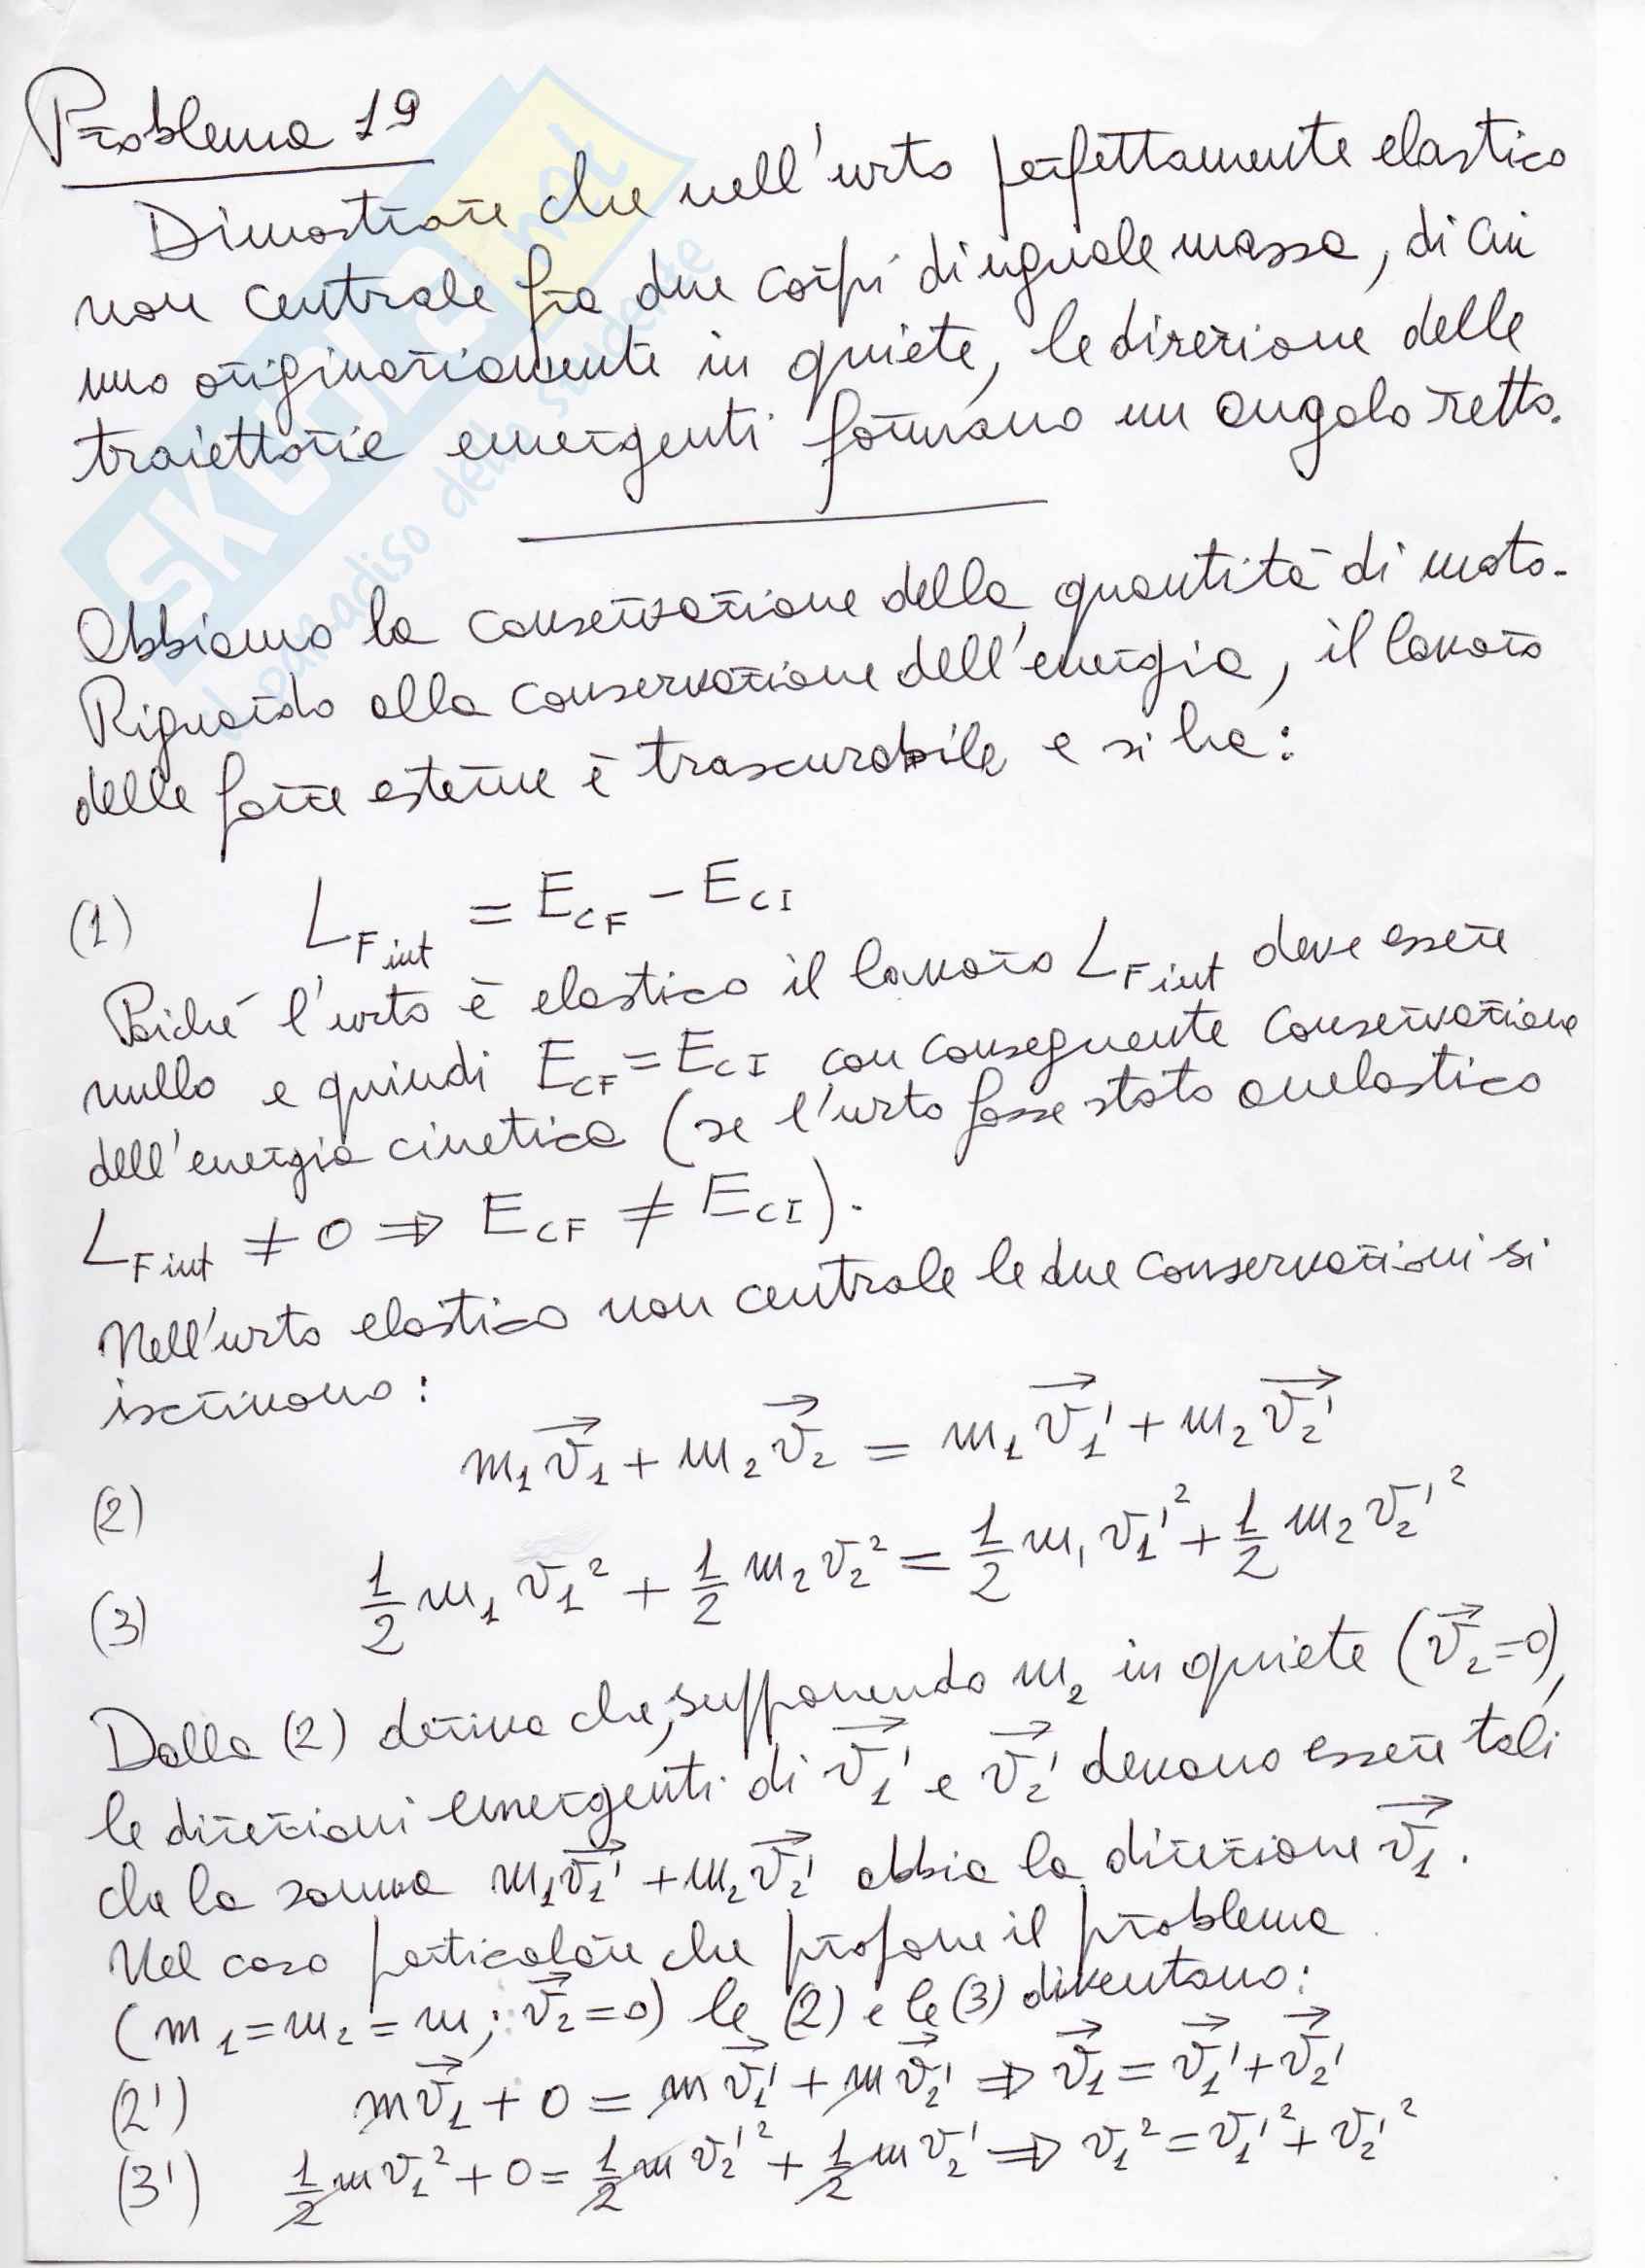 Problema 19
Dimostrare che nell'urto perfettamente elastico
non centrale fra due corpi di uguale massa, di cui
uno originariamente in quiete, le direzione delle
traiettorie emergenti formano un angolo retto.
Abbiamo la conservazione della quantità di moto.
Riguardo alla conservazione dell'energia, il lavoro
delle forze esterne è trascurabile e si ha:
(1) L_{F int} = E_{CF} - E_{CI}
Poiché l'urto è elastico il lavoro L_{F int} deve essere
nullo e quindi E_{CF} = E_{CI} con conseguente conservazione
dell'energia cinetica (se l'urto fosse stato anelastico
L_{F int} ≠ 0 ⇒ E_{CF} ≠ E_{CI}).
Nell'urto elastico non centrale le due conservazioni si
iscrivono:
(2) m₁v⃗₁ + m₂v⃗₂ = m₁v⃗₁' + m₂v⃗₂'
(3) 1/2 m₁v₁² + 1/2 m₂v₂² = 1/2 m₁v₁'² + 1/2 m₂v₂'²
Dalla (2) deriva che, supponendo m₂ in quiete (v⃗₂=0),
le direzioni emergenti di v⃗₁' e v⃗₂' devono essere tali
che la somma m₁v⃗₁' + m₂v⃗₂' abbia la direzione v⃗₁.
Nel caso particolare che propone il problema
(m₁=m₂=m; v⃗₂=0) le (2) e le (3) diventano:
(2') mv⃗₁ + 0 = mv⃗₁' + mv⃗₂' ⇒ v⃗₁ = v⃗₁' + v⃗₂'
(3') 1/2 mv₁² + 0 = 1/2 mv₂'² + 1/2 mv₂' ⇒ v₁² = v₁'² + v₂'²
SKUOLA.net
il paradiso dello studente